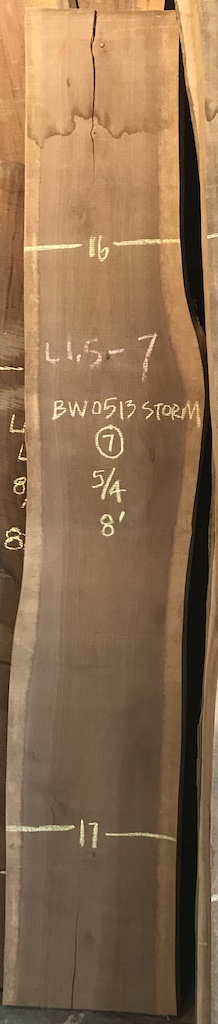 16
41.5-7
BW0513 STORM
7
5/4
8'
17